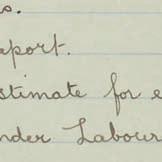 s.
aport.
stimate for e
nder Labour